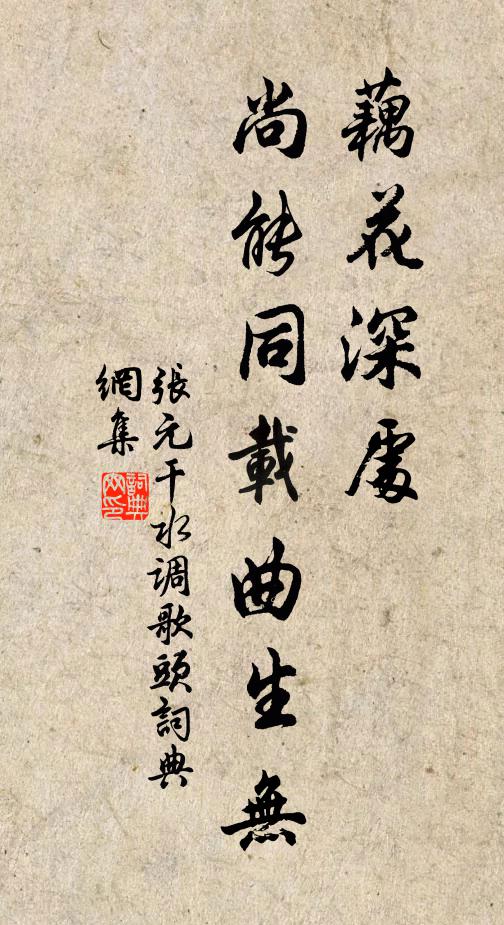 藕花深處
尚能同載曲生無
張元干水调歌頭詞典
網集
詞典
网印